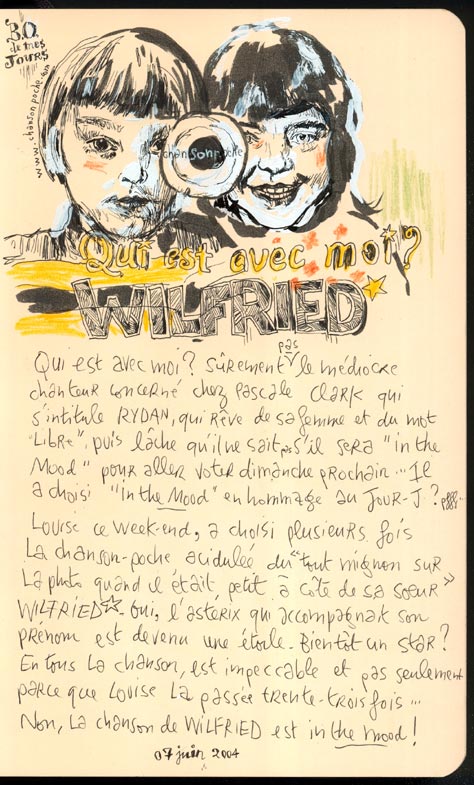 B.O.
de mes
JOURS
www.chansonpoche.com
chansonpoche
Qui est avec moi?
WILFRIED
Qui est avec moi? Sûrement pas le médiocre
chanteur concerné chez Pascale Clark qui
s'intitule RYDAN, qui rêve de sa femme et du mot
"Libre", puis lâche qu'il ne sait pas s'il sera "in the
Mood" pour aller voter dimanche prochain... Il
a choisi "in the Mood" en hommage au Jour-J? pfff...
Louise ce week-end, a choisi plusieurs fois
La chanson-poche acidulée du "tout mignon sur
La photo quand il était petit à côté de sa soeur"
WILFRIED☆. Oui, l'astérix qui accompagnait son
prénom est devenu une étoile. Bientôt un star?
En tous La chanson, est impeccable et pas seulement
parce que Louise La passée trente-trois fois...
Non, La chanson de WILFRIED est in the mood!
07 juin 2004